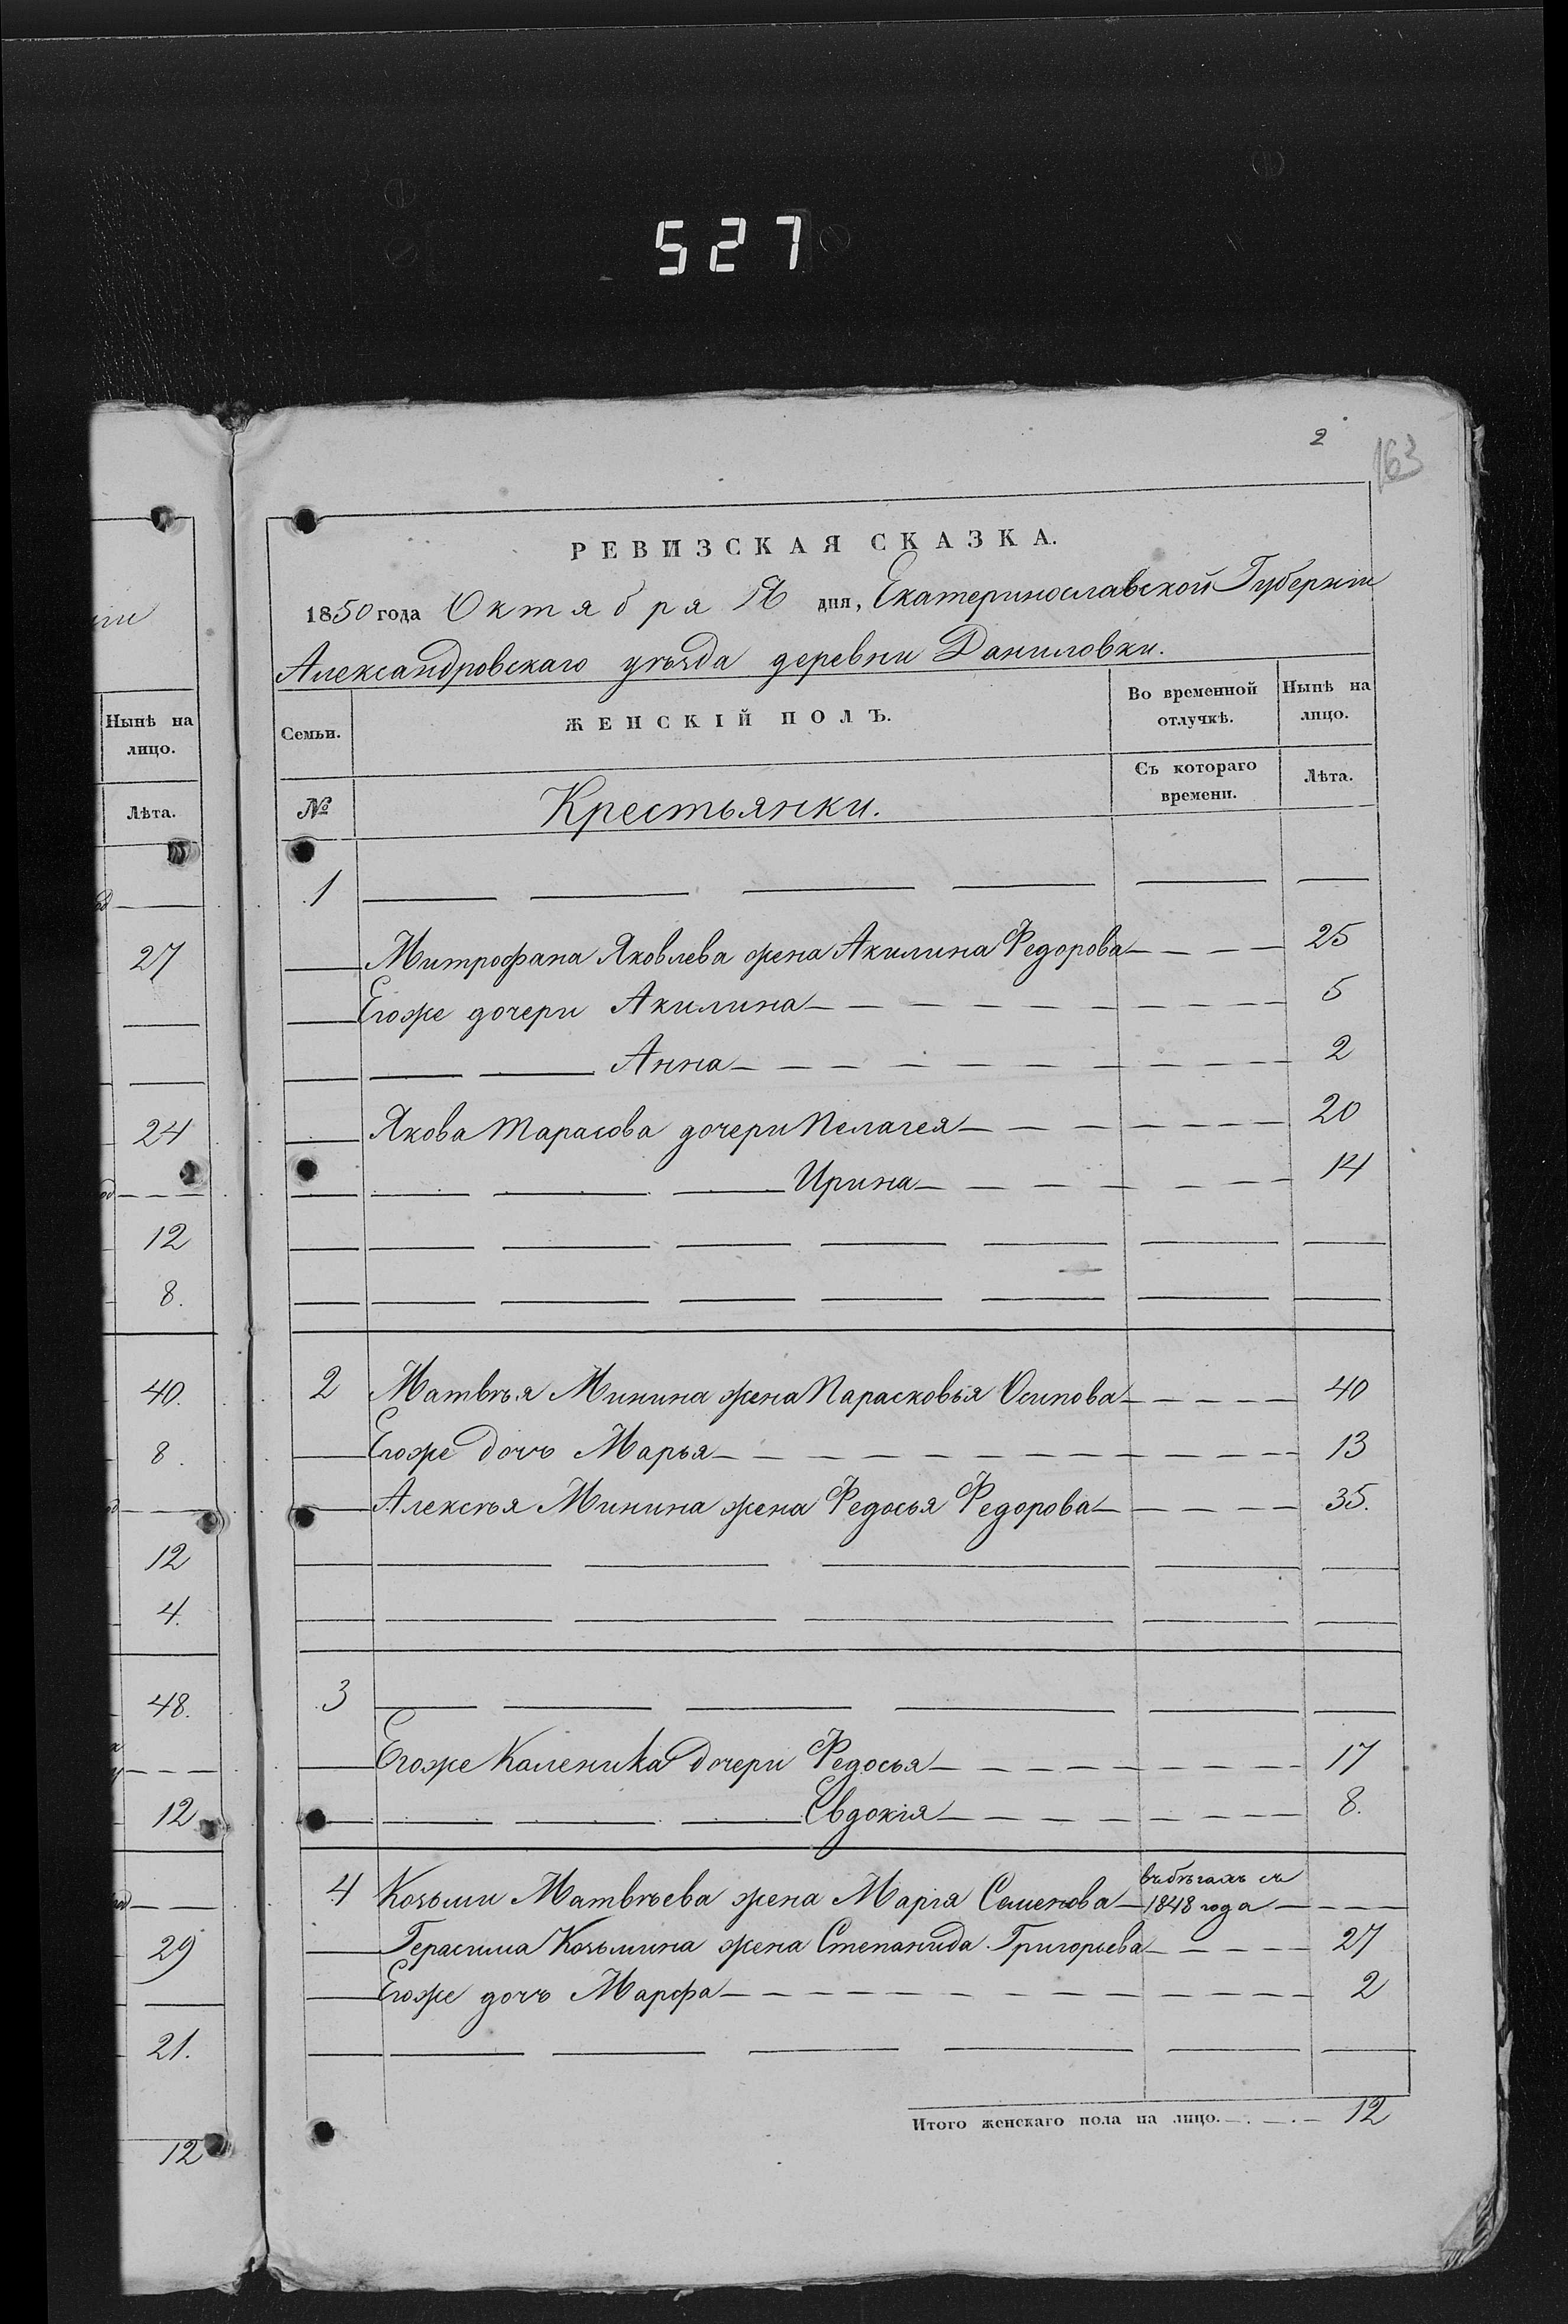 527
2
163
РЕВИЗСКАЯ СКАЗКА.
1850 года Октября дня, Екатеринославской Губерніи
Александровскаго уѣзда деревни Даниловки.
Нынѣ на лицо.
Лѣта.
27
24
12
8.
40.
8.
12
4.
48.
12
29
21.
12
Семьи.
ЖЕНСКІЙ ПОЛЪ.
Во временной отлучкѣ.
Нынѣ на лицо.
№
Крестьянки.
Съ котораго времени.
Лѣта.
1
Митрофана Яковлева жена Акилина Федорова 25
Егоже дочери Акилина 5
Анна 2
Якова Тарасова дочери Пелагея 20
Ирина 14
2 Матвѣя Минина жена Парасковья Осипова 40
Егоже дочь Марья 13
Алексѣя Минина жена Федосья Федорова 35.
3
Егоже Каленика дочери Федосья 17
Евдокія 8.
4 Козьми Матвѣева жена Марія Семенова въ бѣгахъ съ 1848 года
Герасима Козьмина жена Степанида Григорьева 27
Егоже дочь Марфа 2
Итого женскаго пола на лицо. 12